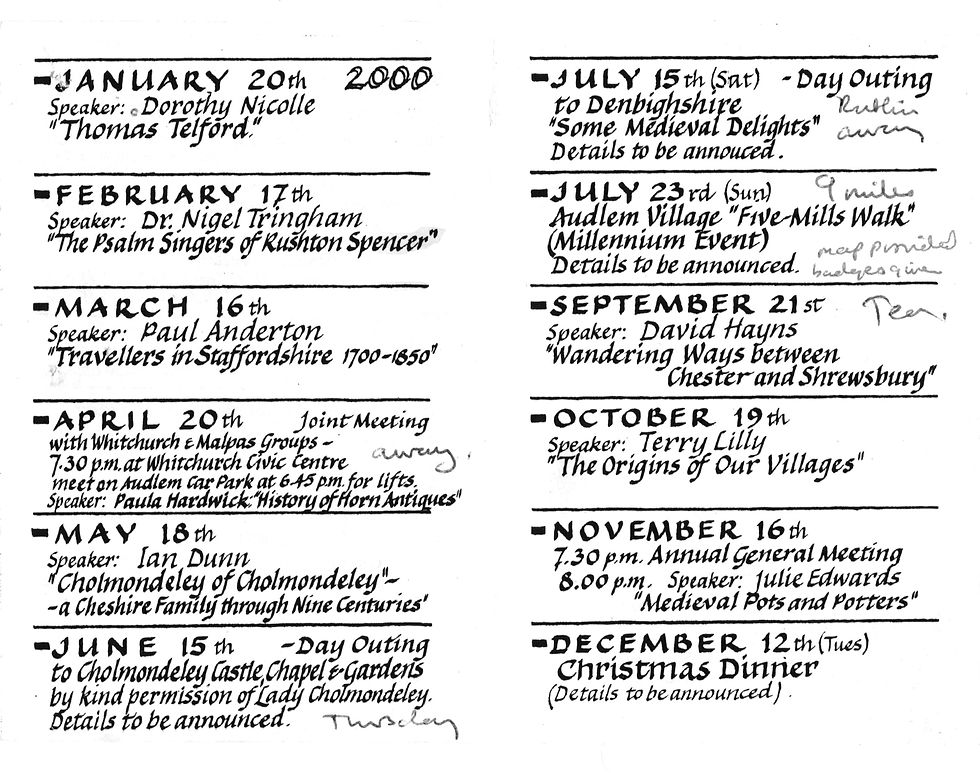 JANUARY 20th 2000
Speaker: Dorothy Nicolle
"Thomas Telford."
FEBRUARY 17th
Speaker: Dr. Nigel Tringham
"The Psalm Singers of Rushton Spencer"
MARCH 16th
Speaker: Paul Anderton
"Travellers in Staffordshire 1700-1850"
APRIL 20th Joint Meeting
with Whitchurch & Malpas Groups -
7.30 p.m. at Whitchurch Civic Centre away.
meet on Audlem Car Park at 6.45 p.m. for lifts.
Speaker: Paula Hardwick: "History of Horn Antiques"
MAY 18th
Speaker: Ian Dunn
"Cholmondeley of Cholmondeley"-
-a Cheshire Family through Nine Centuries'
JUNE 15th -Day Outing
to Cholmondeley Castle, Chapel & Gardens
by kind permission of Lady Cholmondeley.
Details to be announced. Thursday
JULY 15th (Sat) -Day Outing
to Denbighshire Ruthin
"Some Medieval Delights" away
Details to be annouced.
JULY 23rd (Sun) 9 miles
Audlem Village "Five-Mills Walk"
(Millennium Event) map provided
Details to be announced. badges given
SEPTEMBER 21st Tea.
Speaker: David Hayns
"Wandering Ways between
Chester and Shrewsbury"
OCTOBER 19th
Speaker: Terry Lilly
"The Origins of Our Villages"
NOVEMBER 16th
7.30 p.m. Annual General Meeting
8.00 p.m. Speaker: Julie Edwards
"Medieval Pots and Potters"
DECEMBER 12th (Tues)
Christmas Dinner
(Details to be announced).